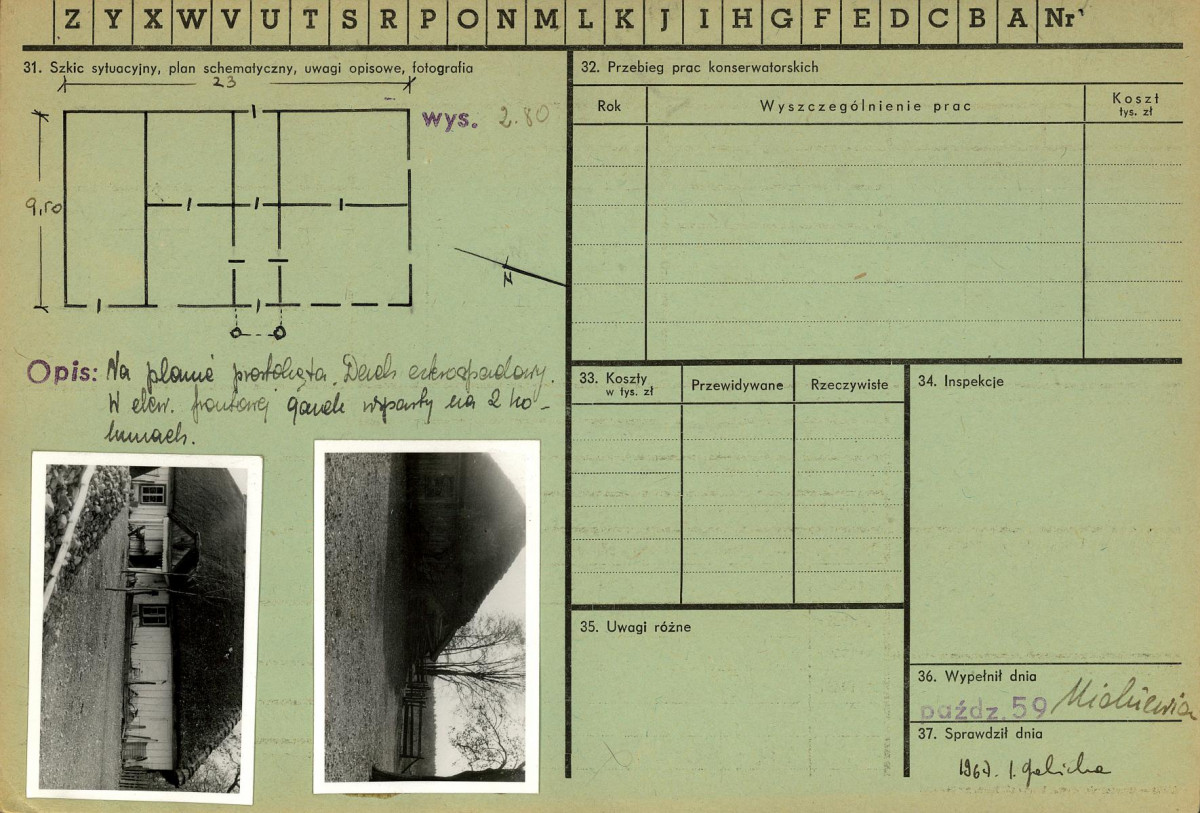 Z Y X W V U T S R P O N M L K J I H G F E D C B A Nr
31. Szkic sytuacyjny, plan schematyczny, uwagi opisowe, fotografia
23
wys. 2.80
9,50
N
Opis: Na planie prostokąta. Dach czterospadowy.
W elew. frontowej ganek wsparty na 2 ko-
lumnach.
32. Przebieg prac konserwatorskich
Rok
Wyszczególnienie prac
Koszt
tys. zł
33. Koszty
w tys. zł
Przewidywane
Rzeczywiste
34. Inspekcje
35. Uwagi różne
36. Wypełnił dnia
paźdz. 59
37. Sprawdził dnia